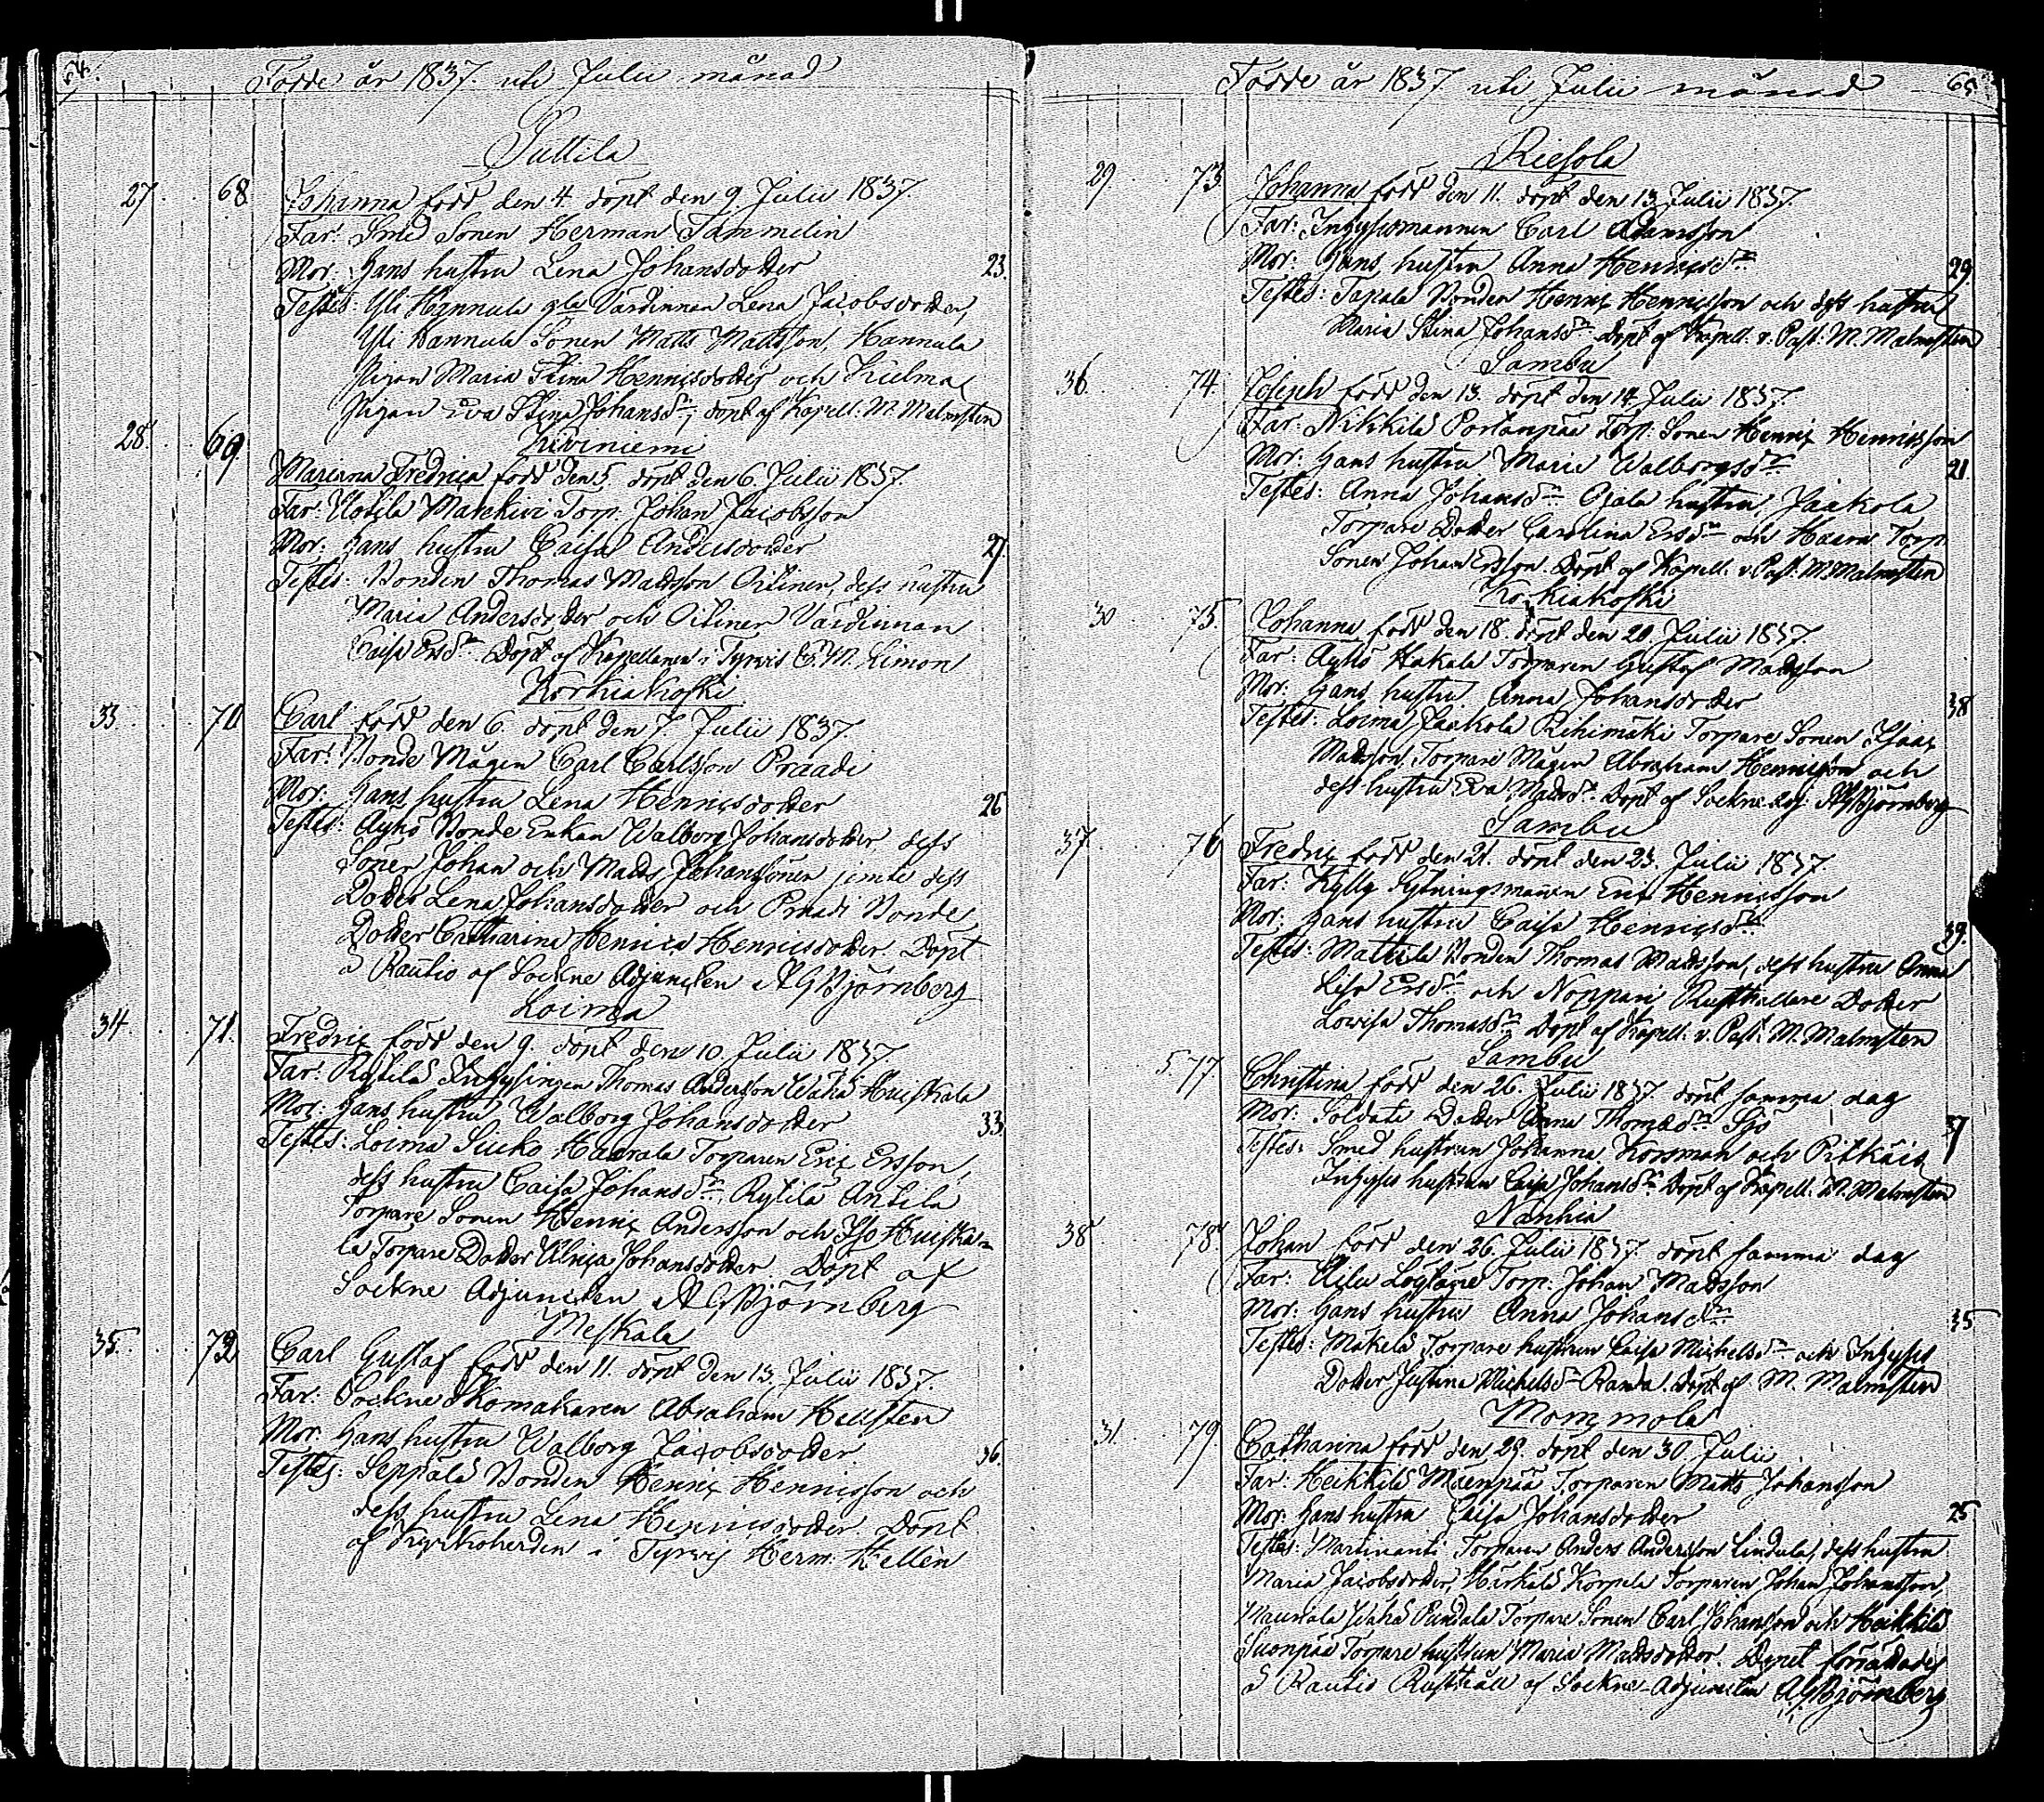 64.
Födde år 1837. uti Julii månad
Suttila
27. 68 Johanna född den 4. döpt den 9 Julii 1837.
Far: Smed Sonen Herman Tammelin
Mor: Hans hustru Lena Johansdotter 23.
Testes: Yli Hannula gla Värdinnan Lena Jacobsdotter,
Yli Hannula Sonen Matts Mattsson, Hannula
Pigan Maria Stina Henricsdotter och Kulma
Pigan Eva Stina Johansdr, döpt af Kapell. M. Malmsten
Kiviniemi
28. 69 Marianna Fredrica född den 5. döpt den 6. Julii 1837.
Far: Uotila Torp. Johan Jacobsson
Mor: Hans hustru Caisa Andersdotter 27.
Testes: Bonden Thomas Mattsson Oitinen, dess hustru
Maria Andersdotter och Oitinen Värdinnan
Caisa Ersdr. Döpt af Kapellanen i Tyrvis C. M. Limon
Korkiakoski
33. 70 Carl född den 6. döpt den 7. Julii 1837.
Far: Bonde Mågen Carl Carlsson Praadi
Mor: Hans hustru Lena Henricsdotter 26
Testes: Äyhö Bonde Enkan Walborg Johansdotter dess
Söner Johan och Matts Johanssöner jemte dess
Dotter Lena Johansdotter och Praadi Bonde
Dotter Catharina Henrica Henricsdotter. Döpt
å Rautio af Sockne Adjuncten A G Björnberg
Loima
34 71. Fredric född den 9. döpt den 10. Julii 1837.
Far: Rostila Inhysingen Thomas Andersson Wähä Huiskala
Mor: Hans hustru Walborg Johansdotter 33.
Testes: Loima Suko Haarala Torparen Eric Ersson,
dess hustru Caisa Johansdr, Rytilä Antila
Torpare Sonen Henric Andersson och Iso Huiska-
la Torpare Dotter Ulrica Johansdotter Döpt af
Sockne Adjuncten A G Björnberg
Meskala
35. 72 Carl Gustaf född den 11. döpt den 13. Julii 1837.
Far: Sockne Skomakaren Abraham Hellsten
Mor: Hans hustru Walborg Jacobsdotter 36.
Testes: Seppälä Bonden Henric Henricsson och
dess hustru Lena Henricsdotter. Döpt
af Kyrkoherden i Tyrvis Herm. Hellén
Födde år 1837. uti Julii månad 65.
Riesola
29. 73 Johanna född den 11. döpt den 13. Julii 1837.
Far: Inhysesmannen Carl Adamsson
Mor: Hans hustru Anna Henricsdr 29.
Testes: Bonden Henric Henricsson och dess hustru
Maria Stina Johansdr. Döpt af Kapell. v. Past: M. Malmsten
Sambu
36. 74. Joseph född den 13. döpt den 14. Julii 1837.
Far: Nikkilä Portanpää Torp: Sonen Henric Henricsson
Mor: Hans hustru Maria Walborgsdr 21.
Testes: Anna Johansdr Ojala hustru, Jaakola
Torpare Dotter Carolina Ersdr och Torp
Sonen Johan Ersson. Döpt af Kapell. v. Past: M. Malmsten
Korkiakoski
30 75. Johanna född den 18. döpt den 20. Julii 1837.
Far: Äyhö Hakala Torparen Gustaf Mattsson
Mor: Hans hustru Anna Johansdotter 38
Testes: Loima Jaakola Rihimäki Torpare Sonen Isaac
Mattsson, Torpare Mågen Abraham Henricsson och
dess hustru Eva Mattsdr. Döpt af Sockne Adj. A G Björnberg
Sambu
37. 76 Fredric född den 21. döpt den 23. Julii 1837.
Far: Kylly Sytningsmannen Eric Henricsson
Mor: Hans hustru Caisa Henricsdr 39.
Testes: Mattila Bonden Thomas Mattsson, dess hustru Anna
Lisa Ersdr och Noppari Rusthållare Dotter
Lovisa Thomasdr Döpt af Kapell. v. Past. M. Malmsten
Sambu
5 77 Christina född den 26. Julii 1837. döpt samma dag
Mor: Soldate Dotter Anna Thomasdr Sjö 37
Testes: Smed hustrun Johanna Korsman och
Inhyses hustrun Caisa Johansdr. Döpt af Kapell. M. Malmsten
Nanhia
38 78. Johan född den 26. Julii 1837. döpt samma dag
Far: Torp. Johan Mattsson
Mor: Hans hustru Anna Johansdr 35
Testes: Mäkelä Torpare hustrun Caisa Michelsdr och Inhyses
Dotter Justina Michelsdr Ranta. Döpt af M. Malmsten
Mommola
31. 79. Catharina född den 29. döpt den 30. Julii
Far: Heikkilä Mäenpää Torparen Matts Johansson
Mor: Hans hustru Caisa Johansdotter 25
Testes: Martinanti Torparen Anders Andersson Lindula, dess hustru
Maria Jacobsdotter, Härkälä Korpela Torparen Johan Johansson,
Mauriala Wähä Torpare Sonen Carl Johansson och Heikkilä
Suonpää Torpare hustrun Maria Mattsdotter. Dopet förrättades
å Rautio Rusthåll af Sockne-Adjuncten A G Björnberg